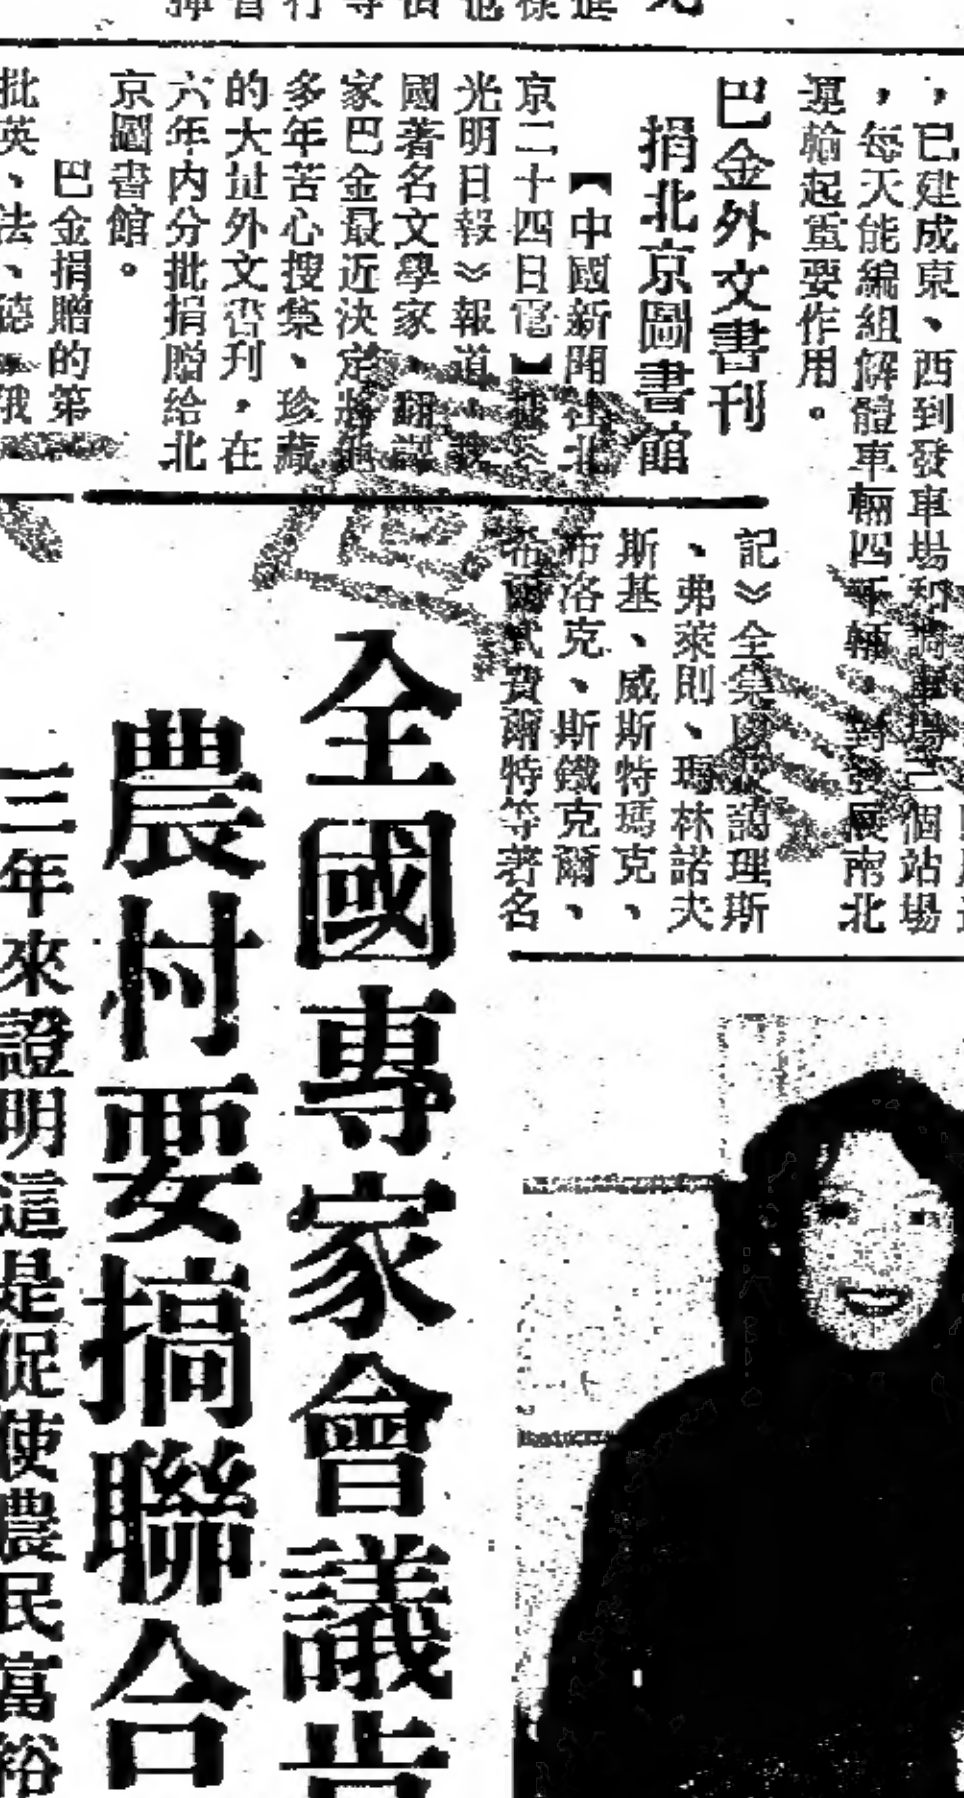 ，已建成東、西到發車場和調車場三個站場
，每天能編組解體車輛四千輛，對發展南北
運輸起重要作用。
巴金外文書刊
捐北京圖書館
【中國新聞社北
京二十四日電】據《
光明日報》報道，我
國著名文學家、翻譯
家巴金最近決定將他
多年苦心搜集、珍藏
的大量外文書刊，在
六年內分批捐贈給北
京圖書館。
巴金捐贈的第
批英、法、德、俄
記》全集以及謁理斯
、弗萊則、瑪林諾夫
斯基、威斯特瑪克、
布洛克、斯鐵克爾、
希爾式費爾特等著名
全國專家會議
農村要搞聯合
三年來證明這是促使農民富裕